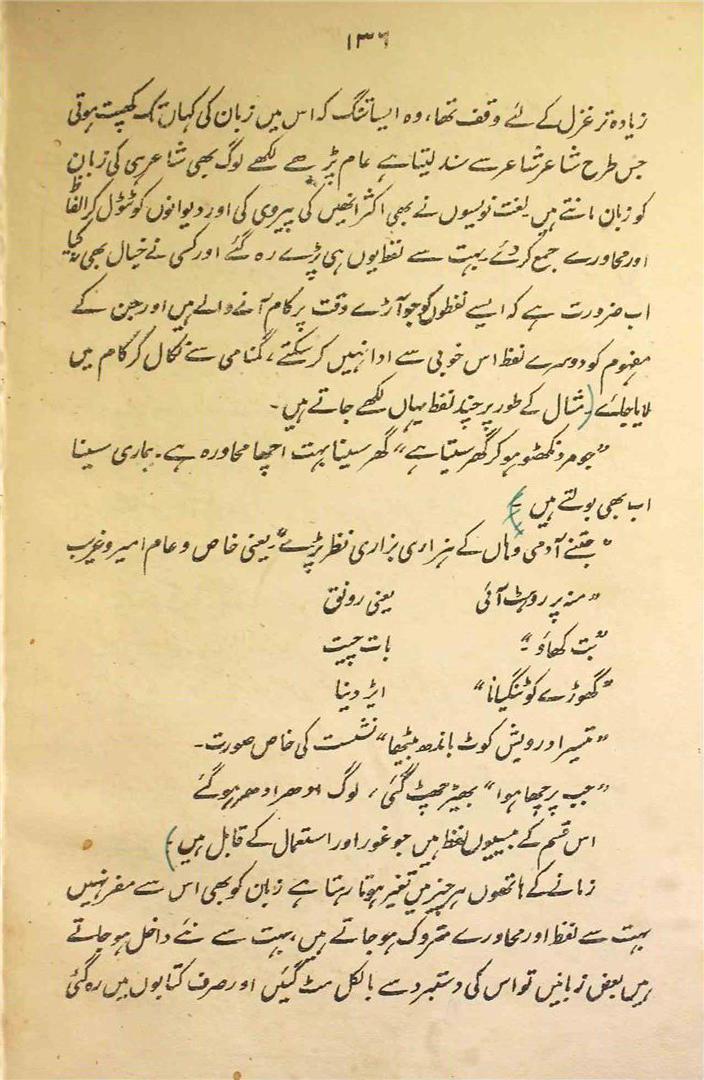 ۱۳۶
زیادہ تر غزل کے لئے وقف تھا، وہ ایسا تنگ کہ اس میں زبان کی کہاں تک کھپت ہوتی
جس طرح شاعر شاعر سے سند لیتا ہے عام پڑھے لکھے لوگ بھی شاعر ہی کی زبان
کو زبان مانتے ہیں۔ لغت نویسوں نے بھی اکثر انھیں کی پیروی کی اور دیوانوں کو ٹٹول کر الفاظ
اور محاورے جمع کر دئے۔ بہت سے لفظ یوں ہی پڑے رہ گئے اور کسی نے خیال بھی نہ کیا
اب ضرورت ہے کہ ایسے لفظوں کو جو آڑے وقت پر کام آنے والے ہیں اور جن کے
مفہوم کو دوسرے لفظ اس خوبی سے ادا نہیں کر سکتے، گمنامی سے نکال کر کام میں
لایا جائے (مثال کے طور پر چند لفظ یہاں لکھے جاتے ہیں۔
"جو مرد نکھٹو ہو کر گھر سیتا ہے" گھر سینا بہت اچھا محاورہ ہے۔ بیماری سینا
اب بھی بولتے ہیں۔
"جتنے آدمی وہاں کے ہزاری بزاری نظر پڑے" یعنی خاص و عام امیر و غریب
"منہ پر روہٹ آئی یعنی رونق
"بت کھاؤ۔" بات چیت
"گھوڑے کو ٹنگیانا" ایڑ دینا
"تیسرا درویش کوٹ باندھ بیٹھا" نشست کی خاص صورت۔
"جب پرچھا ہوا" بھیڑ چھٹ گئی، لوگ ادھر ادھر ہو گئے
اس قسم کے بیسیوں لفظ ہیں جو غور اور استعمال کے قابل ہیں)
زمانے کے ہاتھوں ہر چیز میں تغیر ہوتا رہتا ہے زبان کو بھی اس سے مفر نہیں
بہت سے لفظ اور محاورے متروک ہو جاتے ہیں، بہت سے نئے داخل ہو جاتے
ہیں بعض زبانیں تو اس کی دستبرد سے بالکل مٹ گئیں اور صرف کتابوں میں رہ گئی